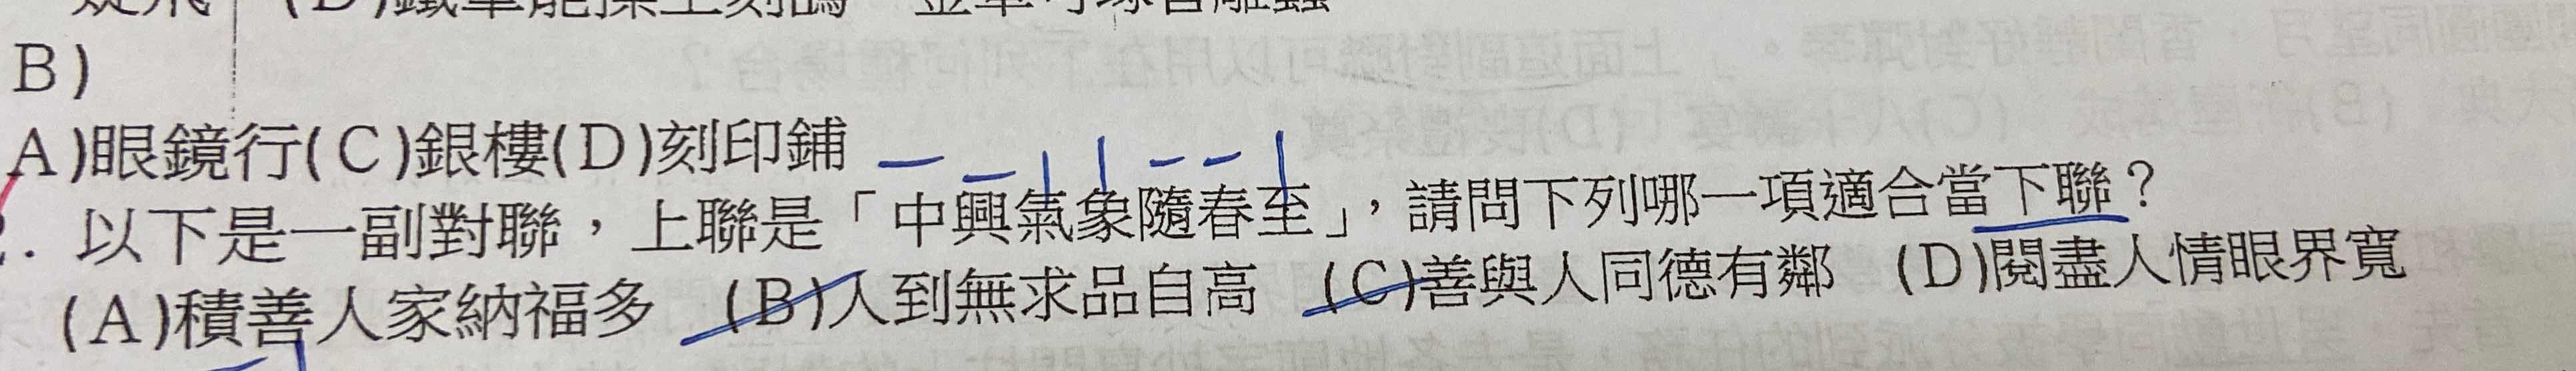 B)
A)眼鏡行(C)銀樓(D)刻印鋪
. 以下是一副對聯，上聯是「中興氣象隨春至」，請問下列哪一項適合當下聯？
(A)積善人家納福多 (B)人到無求品自高 (C)善與人同德有鄰 (D)閱盡人情眼界寬